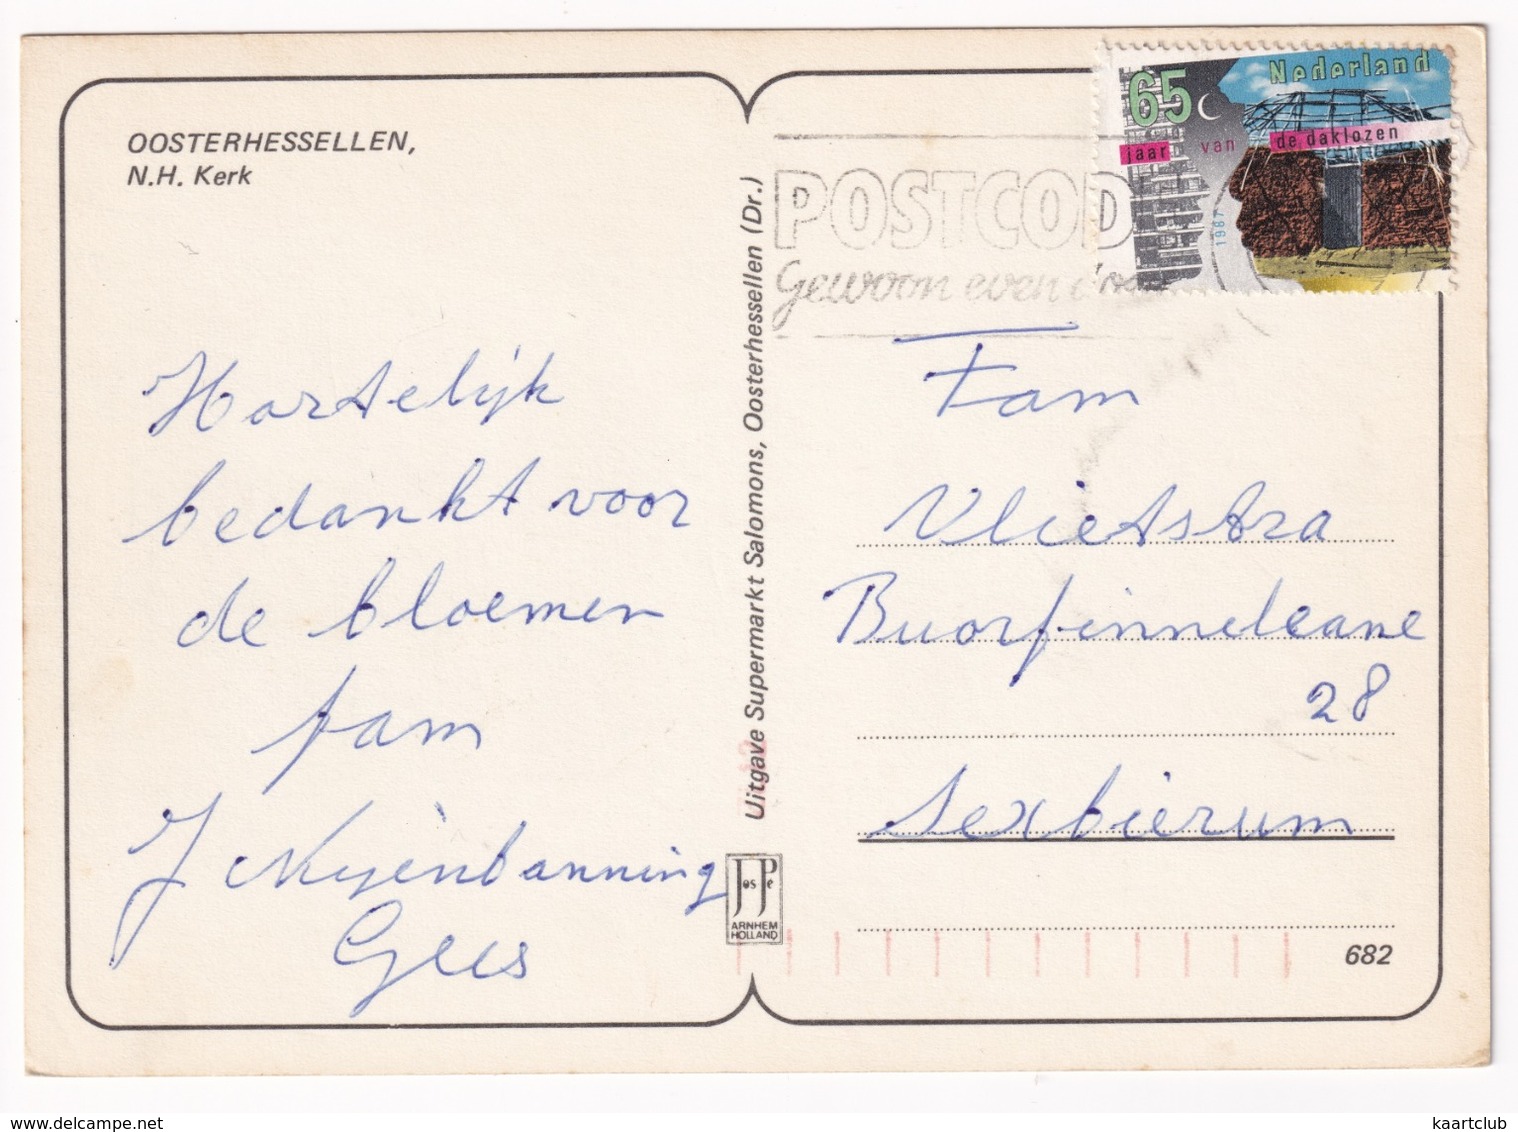 OOSTERHESSELLEN,
N.H. Kerk
Hartelijk
bedankt voor
de bloemen
fam
Gees
Uitgave Supermarkt Salomons, Oosterhessellen (Dr.)
Jos Pé
ARNHEM
HOLLAND
POSTCOD
Gewoon even
65
Nederland
jaar van de daklozen
1987
Fam
Vlietstra
Buorfinneleane
28
Sexbierum
682
www.delcampe.net
kaartclub